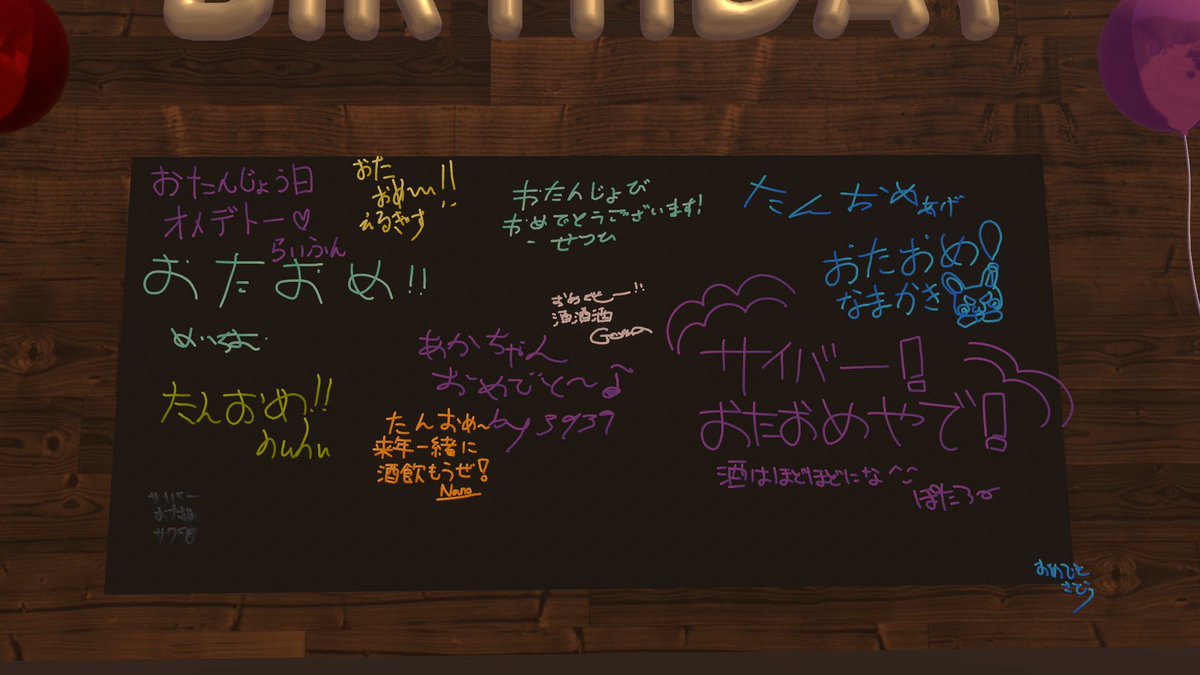 BIRTHDAY
おたんじょう日
オメデトー♡
らいふん
おた
おめ〜!!
えるぎす
おたんじょび
おめでとうございます!
- せつひ
たんおめ あげ
おたおめ!
なまかき
おたおめ!!
酒酒酒
あかちゃん
おめでと〜♪
by 3937
サイバー!
おたおめやで!
酒はほどほどにな^^
ぽたろー
たんおめ!!
たんおめ〜
来年一緒に
酒飲もうぜ!
Nano
サイバー
おめでと